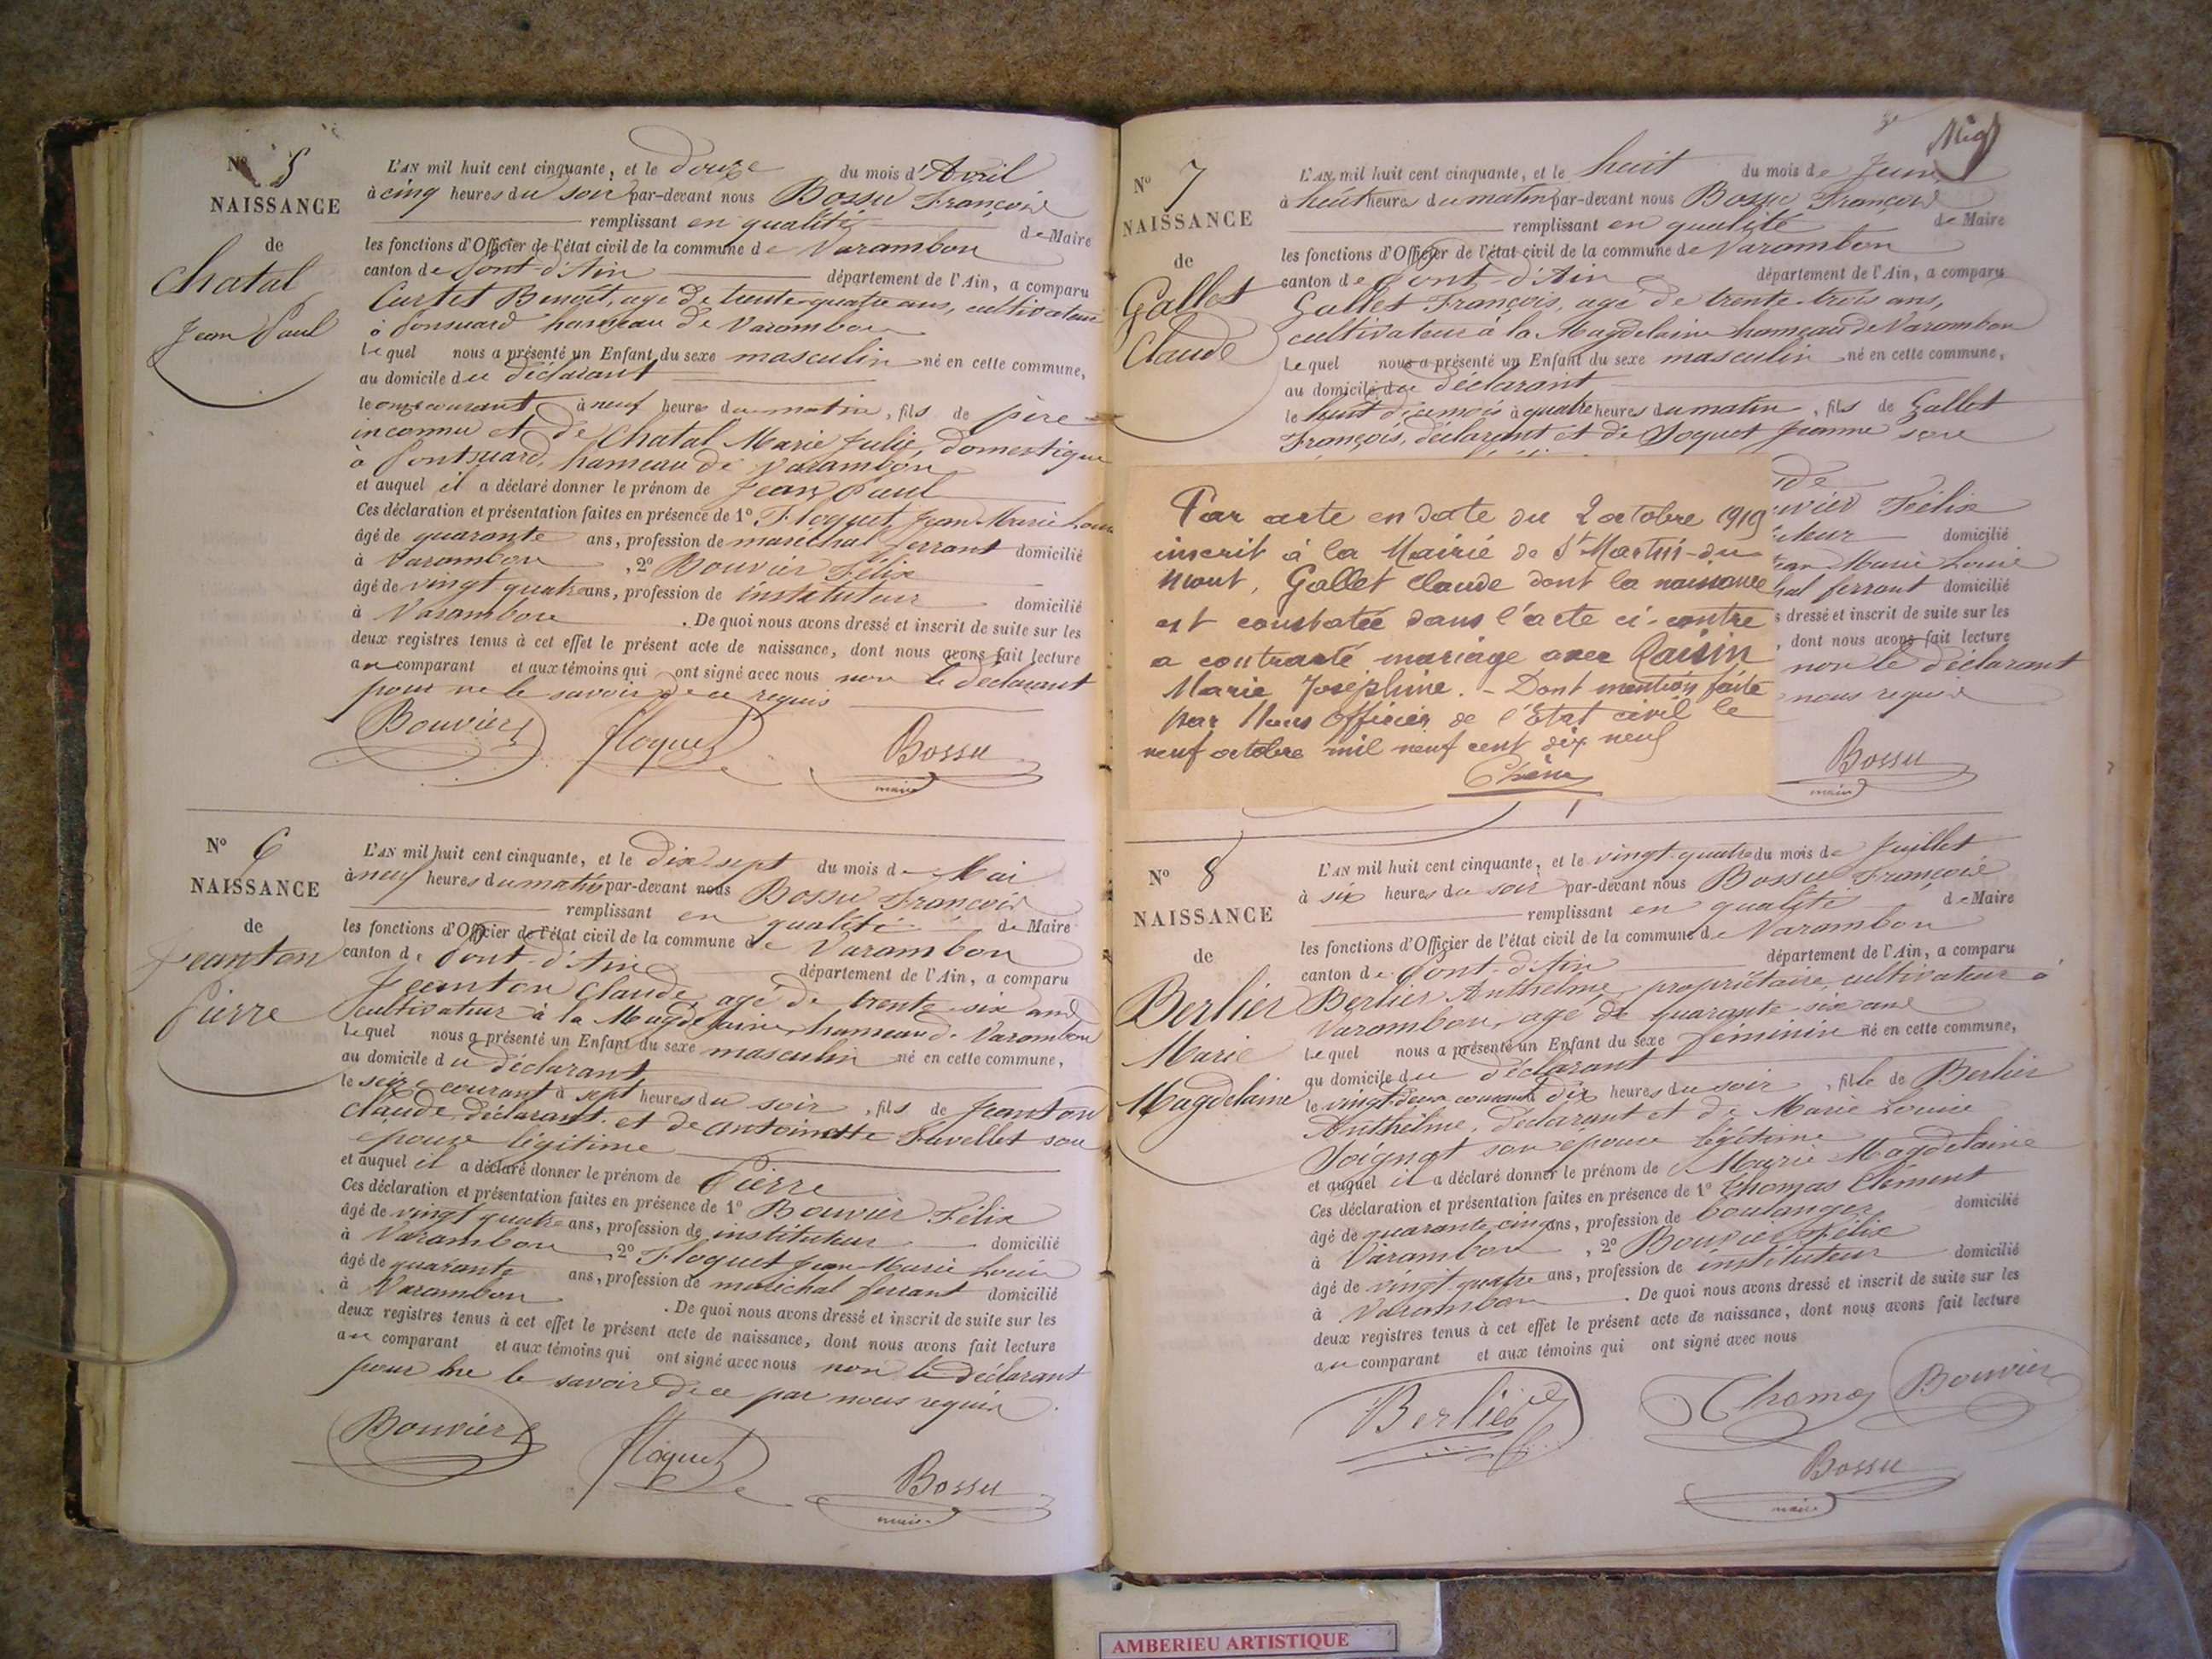 Nº 5
NAISSANCE
de
Chatal
Jean Paul
L'AN mil huit cent cinquante, et le douze du mois d'Avril
à cinq heures du soir par-devant nous Bossu François
remplissant en qualité de Maire
les fonctions d'Officier de l'état civil de la commune de Varambon
canton de Pont-d'Ain département de l'Ain, a comparu
Curtet Benoît, agé de trente-quatre ans, cultivateur
à Ponsuard hameau de Varambon
lequel nous a présenté un Enfant du sexe masculin né en cette commune,
au domicile du déclarant
le onze courant à neuf heures du matin, fils de père
inconnu et de Chatal Marie Julie, domestique
à Pontsuard, hameau de Varambon
et auquel il a déclaré donner le prénom de Jean Paul
Ces déclaration et présentation faites en présence de 1º Floquet Jean Marie Louis
âgé de quarante ans, profession de maréchal ferrant domicilié
à Varambon, 2º Bouvier Félix
âgé de vingt quatre ans, profession de instituteur domicilié
à Varambon. De quoi nous avons dressé et inscrit de suite sur les
deux registres tenus à cet effet le présent acte de naissance, dont nous avons fait lecture
au comparant et aux témoins qui ont signé avec nous non le déclarant
pour ne le savoir de ce requis
Bouvier Floquet Bossu
maire
Nº 6
NAISSANCE
de
Jeanton
Pierre
L'AN mil huit cent cinquante, et le dix-sept du mois de Mai
à neuf heures du matin par-devant nous Bossu François
remplissant en qualité de Maire
les fonctions d'Officier de l'état civil de la commune de Varambon
canton de Pont-d'Ain département de l'Ain, a comparu
Jeanton Claude, agé de trente-six ans
cultivateur à la Magdelaine, hameau de Varambon
lequel nous a présenté un Enfant du sexe masculin né en cette commune,
au domicile du déclarant
le seize courant à sept heures du soir, fils de Jeanton
Claude, déclarant et de Antoinette son
épouse légitime
et auquel il a déclaré donner le prénom de Pierre
Ces déclaration et présentation faites en présence de 1º Bouvier Félix
âgé de vingt quatre ans, profession de instituteur domicilié
à Varambon, 2º Floquet Jean Marie Louis
âgé de quarante ans, profession de maréchal ferrant domicilié
à Varambon. De quoi nous avons dressé et inscrit de suite sur les
deux registres tenus à cet effet le présent acte de naissance, dont nous avons fait lecture
au comparant et aux témoins qui ont signé avec nous non le déclarant
pour ne le savoir de ce par nous requis
Bouvier Floquet Bossu
maire
Nº 7
NAISSANCE
de
Gallet
Claude
L'AN mil huit cent cinquante, et le huit du mois de Juin
à huit heures du matin par-devant nous Bossu François
remplissant en qualité de Maire
les fonctions d'Officier de l'état civil de la commune de Varambon
canton de Pont-d'Ain département de l'Ain, a comparu
Gallet François, agé de trente-trois ans,
cultivateur à la Magdelaine hameau de Varambon
Lequel nous a présenté un Enfant du sexe masculin né en cette commune,
au domicile du déclarant
le huit du mois à quatre heures du matin, fils de Gallet
François, déclarant et de Soquet Jeanne son
Par acte en date du 2 octobre 1919
inscrit à la Mairie de St Martin-du
Mont, Gallet Claude dont la naissance
est constatée dans l'acte ci-contre
a contracté mariage avec Raisin
Marie Joséphine. - Dont mention faite
par Nous Officier de l'Etat civil le
neuf octobre mil neuf cent dix neuf
uvier Félix
domicilié
Jean Marie Louis
ferrant domicilié
s dressé et inscrit de suite sur les
, dont nous avons fait lecture
non le déclarant
nous requis
Bossu
maire
Nº 8
NAISSANCE
de
Berlier
Marie
Magdelaine
L'AN mil huit cent cinquante, et le vingt-quatre du mois de Juillet
à six heures du soir par-devant nous Bossu François
remplissant en qualité de Maire
les fonctions d'Officier de l'état civil de la commune de Varambon
canton de Pont-d'Ain département de l'Ain, a comparu
Berlier Anthelme, propriétaire, cultivateur à
Varambon, agé de quarante-six ans
Lequel nous a présenté un Enfant du sexe féminin né en cette commune,
au domicile du déclarant
le vingt-deux courant à dix heures du soir, fille de Berlier
Anthelme, déclarant et de Marie Louise
Soignat son épouse légitime
et auquel il a déclaré donner le prénom de Marie Magdelaine
Ces déclaration et présentation faites en présence de 1º Thomas Clément
âgé de quarante-cinq ans, profession de boulanger domicilié
à Varambon, 2º Bouvier Félix
âgé de vingt quatre ans, profession de instituteur domicilié
à Varambon. De quoi nous avons dressé et inscrit de suite sur les
deux registres tenus à cet effet le présent acte de naissance, dont nous avons fait lecture
au comparant et aux témoins qui ont signé avec nous
Berlier Thomas Bouvier
Bossu
maire
AMBERIEU ARTISTIQUE